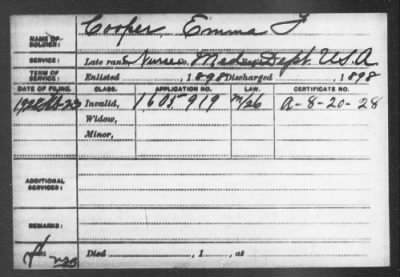 Cooper, Emma F
NAME OF SOLDIER:
SERVICE: Late rank Nurse Co. Med. Dept. U.S.A
TERM OF SERVICE: Enlisted , 1898 Discharged , 1898
DATE OF FILING. CLASS. APPLICATION NO. LAW. CERTIFICATE NO.
Invalid, 1605-919 A-8-20-28
Widow,
Minor,
ADDITIONAL SERVICES:
REMARKS:
Died , 1 , at